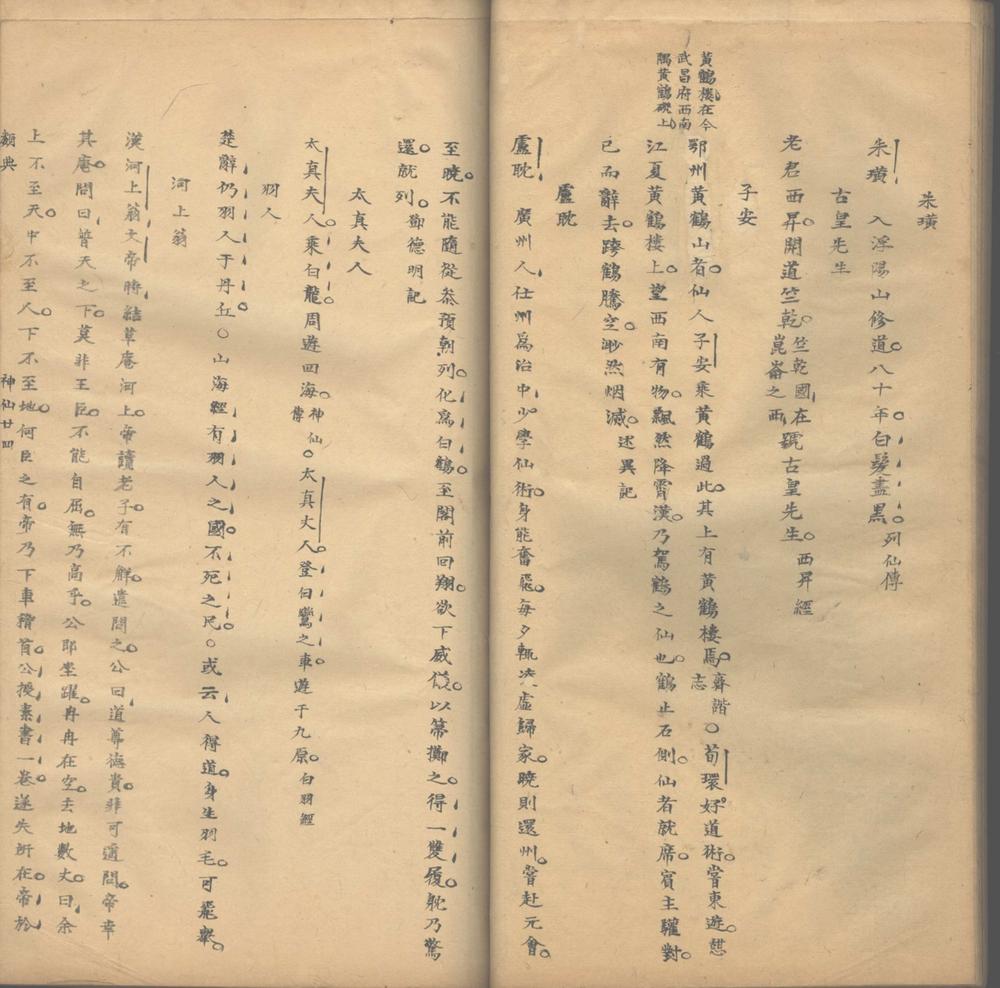 朱璜
朱璜　入浮陽山修道。八十年。白髮盡黑。列仙傳
古皇先生
老君西昇。開道竺乾。竺乾國在崑崙之西號古皇先生。西昇經
子安
黃鶴樓在今
武昌府西南
隅黃鶴磯上
鄂州黃鶴山者。仙人子安乘黃鶴過此。其上有黃鶴樓焉。齊諧志○荀環好道術。嘗東遊。憇
江夏黃鶴樓上。望西南有物。飄然降霄漢。乃駕鶴之仙也。鶴止石側。仙者就席。賓主驩對。
已而辭去。跨鶴騰空。渺然烟滅。述異記
盧耽
盧耽　廣州人。仕州爲治中。少學仙術。身能奮飛。每夕輒凌虛歸家。曉則還州。嘗赴元會。
至曉。不能隨從叅預朝列。化爲白鶴。至閣前回翔。欲下威儀。以箒擲之。得一雙履。耽乃驚
還。就列。鄧德明記
太真夫人
太真夫人乘白龍。周遊四海。神仙傳○太真丈人。登白鸞之車。遊于九原。白羽經
羽人
楚辭仍羽人于丹丘○山海經有羽人之國。不死之民。○或云人得道。身生羽毛。可飛舉。
河上翁
漢河上翁。文帝時結草庵河上。帝讀老子。有不解。遣問之。公曰道尊德貴。非可遥問。帝幸
其庵。問曰。普天之下。莫非王臣。不能自屈。無乃高乎。公卽坐躍。冉冉在空。去地數丈。曰余
上不至天。中不至人。下不至地。何臣之有。帝乃下車稽首。公授素書一卷。遂失所在。帝於
類典　神仙廿四